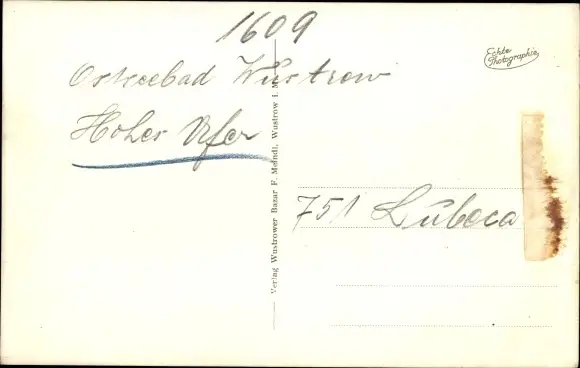 1609
Echte
Photographie
Ostseebad Wustrow
Hohes Ufer
Verlag Wustrower Bazar F. Meindl, Wustrow i. M.
751 Lubeca